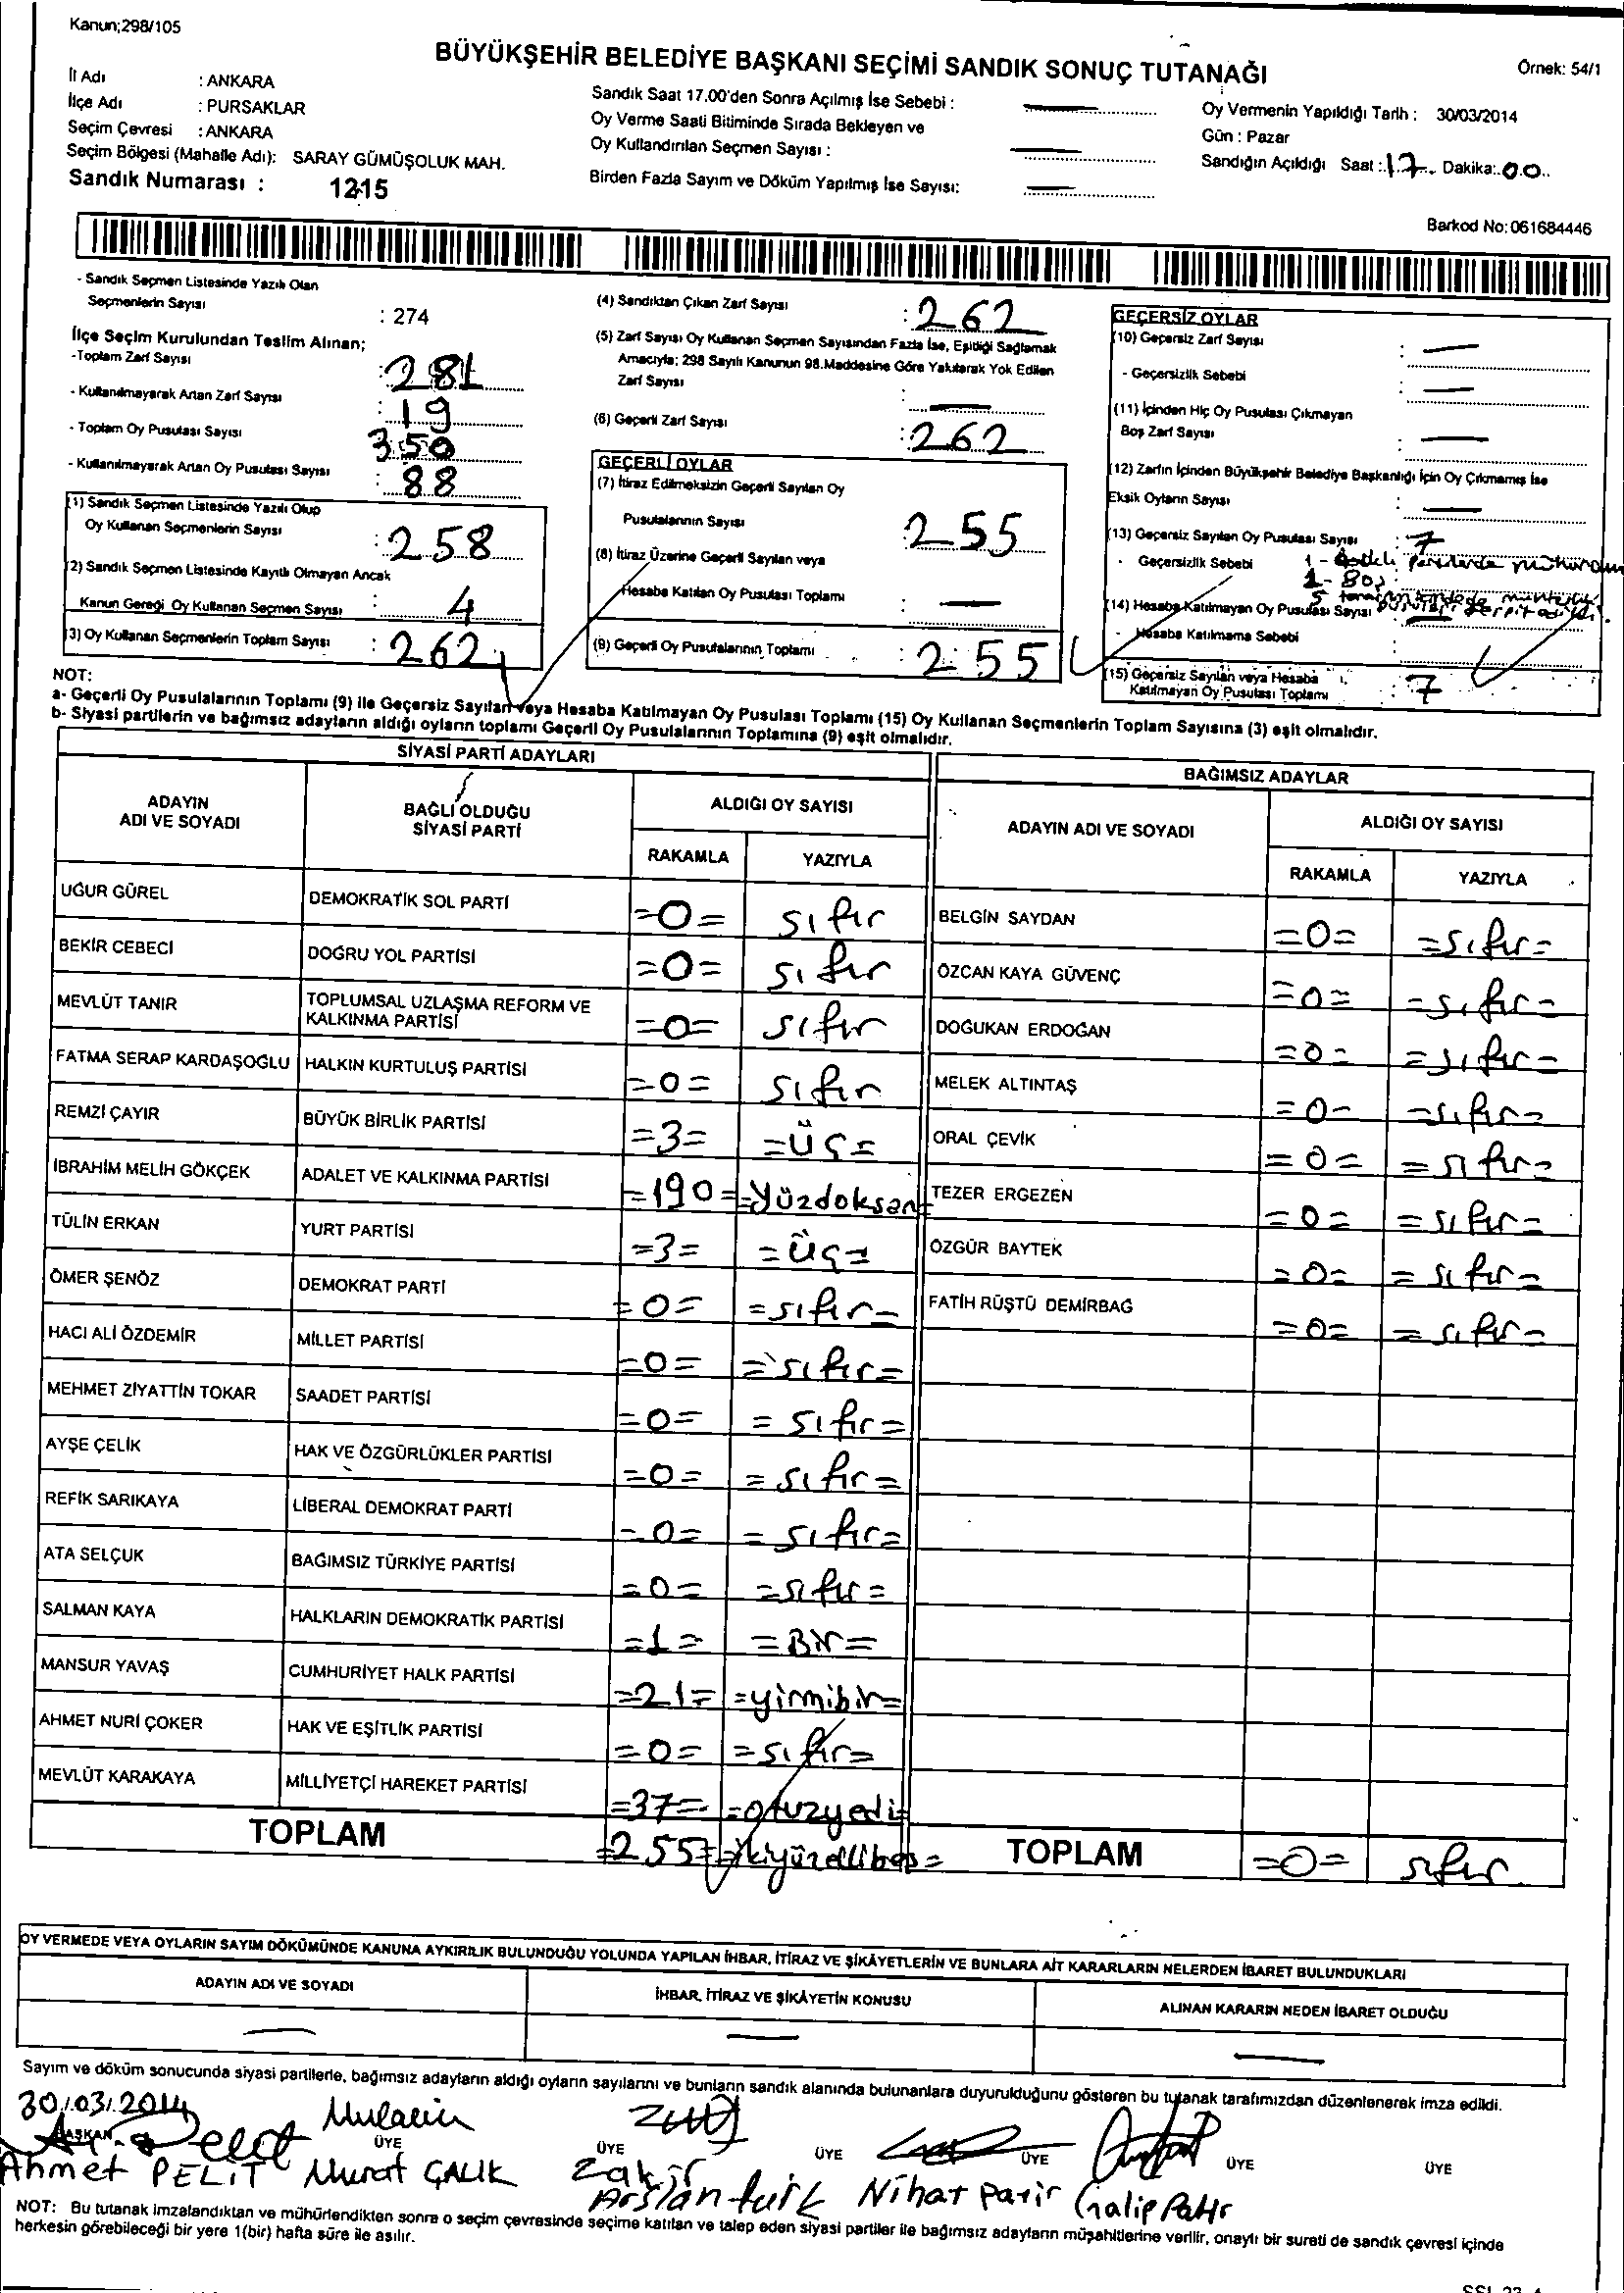 Kanun;298/105
BÜYÜKŞEHİR BELEDİYE BAŞKANI SEÇİMİ SANDIK SONUÇ TUTANAĞI
Örnek: 54/1
İl Adı : ANKARA
İlçe Adı : PURSAKLAR
Seçim Çevresi : ANKARA
Seçim Bölgesi (Mahalle Adı): SARAY GÜMÜŞOLUK MAH.
Sandık Numarası : 1215
Sandık Saat 17.00'den Sonra Açılmış İse Sebebi : —
Oy Verme Saati Bitiminde Sırada Bekleyen ve
Oy Kullandırılan Seçmen Sayısı : —
Birden Fazla Sayım ve Döküm Yapılmış İse Sayısı: —
Oy Vermenin Yapıldığı Tarih : 30/03/2014
Gün : Pazar
Sandığın Açıldığı Saat : 17 Dakika: 00
Barkod No: 061684446
- Sandık Seçmen Listesinde Yazılı Olan
Seçmenlerin Sayısı : 274
İlçe Seçim Kurulundan Teslim Alınan;
-Toplam Zarf Sayısı : 281
- Kullanılmayarak Artan Zarf Sayısı : 19
- Toplam Oy Pusulası Sayısı 350
- Kullanılmayarak Artan Oy Pusulası Sayısı : 88
(1) Sandık Seçmen Listesinde Yazılı Olup
Oy Kullanan Seçmenlerin Sayısı : 258
(2) Sandık Seçmen Listesinde Kayıtlı Olmayan Ancak
Kanun Gereği Oy Kullanan Seçmen Sayısı : 4
(3) Oy Kullanan Seçmenlerin Toplam Sayısı : 262
(4) Sandıktan Çıkan Zarf Sayısı : 262
(5) Zarf Sayısı Oy Kullanan Seçmen Sayısından Fazla İse, Eşitliği Sağlamak
Amacıyla; 298 Sayılı Kanunun 98.Maddesine Göre Yakılarak Yok Edilen
Zarf Sayısı : —
(6) Geçerli Zarf Sayısı : 262
GEÇERLİ OYLAR
(7) İtiraz Edilmeksizin Geçerli Sayılan Oy
Pusulalarının Sayısı : 255
(8) İtiraz Üzerine Geçerli Sayılan veya
Hesaba Katılan Oy Pusulası Toplamı : —
(9) Geçerli Oy Pusulalarının Toplamı : 255
GEÇERSİZ OYLAR
(10) Geçersiz Zarf Sayısı : —
- Geçersizlik Sebebi : —
(11) İçinden Hiç Oy Pusulası Çıkmayan
Boş Zarf Sayısı : —
(12) Zarfın İçinden Büyükşehir Belediye Başkanlığı İçin Oy Çıkmamış İse
Eksik Oyların Sayısı : —
(13) Geçersiz Sayılan Oy Pusulası Sayısı : 7
- Geçersizlik Sebebi
(14) Hesaba Katılmayan Oy Pusulası Sayısı : —
- Hesaba Katılmama Sebebi
(15) Geçersiz Sayılan veya Hesaba
Katılmayan Oy Pusulası Toplamı : 7
NOT:
a- Geçerli Oy Pusulalarının Toplamı (9) ile Geçersiz Sayılan veya Hesaba Katılmayan Oy Pusulası Toplamı (15) Oy Kullanan Seçmenlerin Toplam Sayısına (3) eşit olmalıdır.
b- Siyasi partilerin ve bağımsız adayların aldığı oyların toplamı Geçerli Oy Pusulalarının Toplamına (9) eşit olmalıdır.
SİYASİ PARTİ ADAYLARI
ADAYIN ADI VE SOYADI BAĞLI OLDUĞU SİYASİ PARTİ ALDIĞI OY SAYISI
RAKAMLA YAZIYLA
UĞUR GÜREL DEMOKRATİK SOL PARTİ =0= sıfır
BEKİR CEBECİ DOĞRU YOL PARTİSİ =0= sıfır
MEVLÜT TANIR TOPLUMSAL UZLAŞMA REFORM VE KALKINMA PARTİSİ =0= sıfır
FATMA SERAP KARDAŞOĞLU HALKIN KURTULUŞ PARTİSİ =0= sıfır
REMZİ ÇAYIR BÜYÜK BİRLİK PARTİSİ =3= =ÜÇ=
İBRAHİM MELİH GÖKÇEK ADALET VE KALKINMA PARTİSİ =190= =Yüzdoksan=
TÜLİN ERKAN YURT PARTİSİ =3= =Üç=
ÖMER ŞENÖZ DEMOKRAT PARTİ =0= =sıfır=
HACI ALİ ÖZDEMİR MİLLET PARTİSİ =0= =sıfır=
MEHMET ZİYATTİN TOKAR SAADET PARTİSİ =0= =sıfır=
AYŞE ÇELİK HAK VE ÖZGÜRLÜKLER PARTİSİ =0= =sıfır=
REFİK SARIKAYA LİBERAL DEMOKRAT PARTİ =0= =sıfır=
ATA SELÇUK BAĞIMSIZ TÜRKİYE PARTİSİ =0= =sıfır=
SALMAN KAYA HALKLARIN DEMOKRATİK PARTİSİ =1= =Bir=
MANSUR YAVAŞ CUMHURİYET HALK PARTİSİ =21= =yirmibir=
AHMET NURİ ÇOKER HAK VE EŞİTLİK PARTİSİ =0= =sıfır=
MEVLÜT KARAKAYA MİLLİYETÇİ HAREKET PARTİSİ =37= =otuzyedi=
TOPLAM =255= =ikiyüzellibeş=
BAĞIMSIZ ADAYLAR
ADAYIN ADI VE SOYADI ALDIĞI OY SAYISI
RAKAMLA YAZIYLA
BELGİN SAYDAN =0= =sıfır=
ÖZCAN KAYA GÜVENÇ =0= =sıfır=
DOĞUKAN ERDOĞAN =0= =sıfır=
MELEK ALTINTAŞ =0= =sıfır=
ORAL ÇEVİK =0= =sıfır=
TEZER ERGEZEN =0= =sıfır=
ÖZGÜR BAYTEK =0= =sıfır=
FATİH RÜŞTÜ DEMİRBAĞ =0= =sıfır=
TOPLAM =0= sıfır
OY VERMEDE VEYA OYLARIN SAYIM DÖKÜMÜNDE KANUNA AYKIRILIK BULUNDUĞU YOLUNDA YAPILAN İHBAR, İTİRAZ VE ŞİKÂYETLERİN VE BUNLARA AİT KARARLARIN NELERDEN İBARET BULUNDUKLARI
ADAYIN ADI VE SOYADI İHBAR, İTİRAZ VE ŞİKÂYETİN KONUSU ALINAN KARARIN NEDEN İBARET OLDUĞU
— — —
Sayım ve döküm sonucunda siyasi partilerle, bağımsız adayların aldığı oyların sayılarını ve bunların sandık alanında bulunanlara duyurulduğunu gösteren bu tutanak tarafımızdan düzenlenerek imza edildi.
30/03/2014
BAŞKAN ÜYE ÜYE ÜYE ÜYE ÜYE ÜYE
Ahmet PELİT Murat ÇALIK Zakir Arslantürk Nihat Patır Galip Patır
NOT: Bu tutanak imzalandıktan ve mühürlendikten sonra o seçim çevresinde seçime katılan ve talep eden siyasi partiler ile bağımsız adayların müşahitlerine verilir, onaylı bir sureti de sandık çevresi içinde
herkesin görebileceği bir yere 1(bir) hafta süre ile asılır.